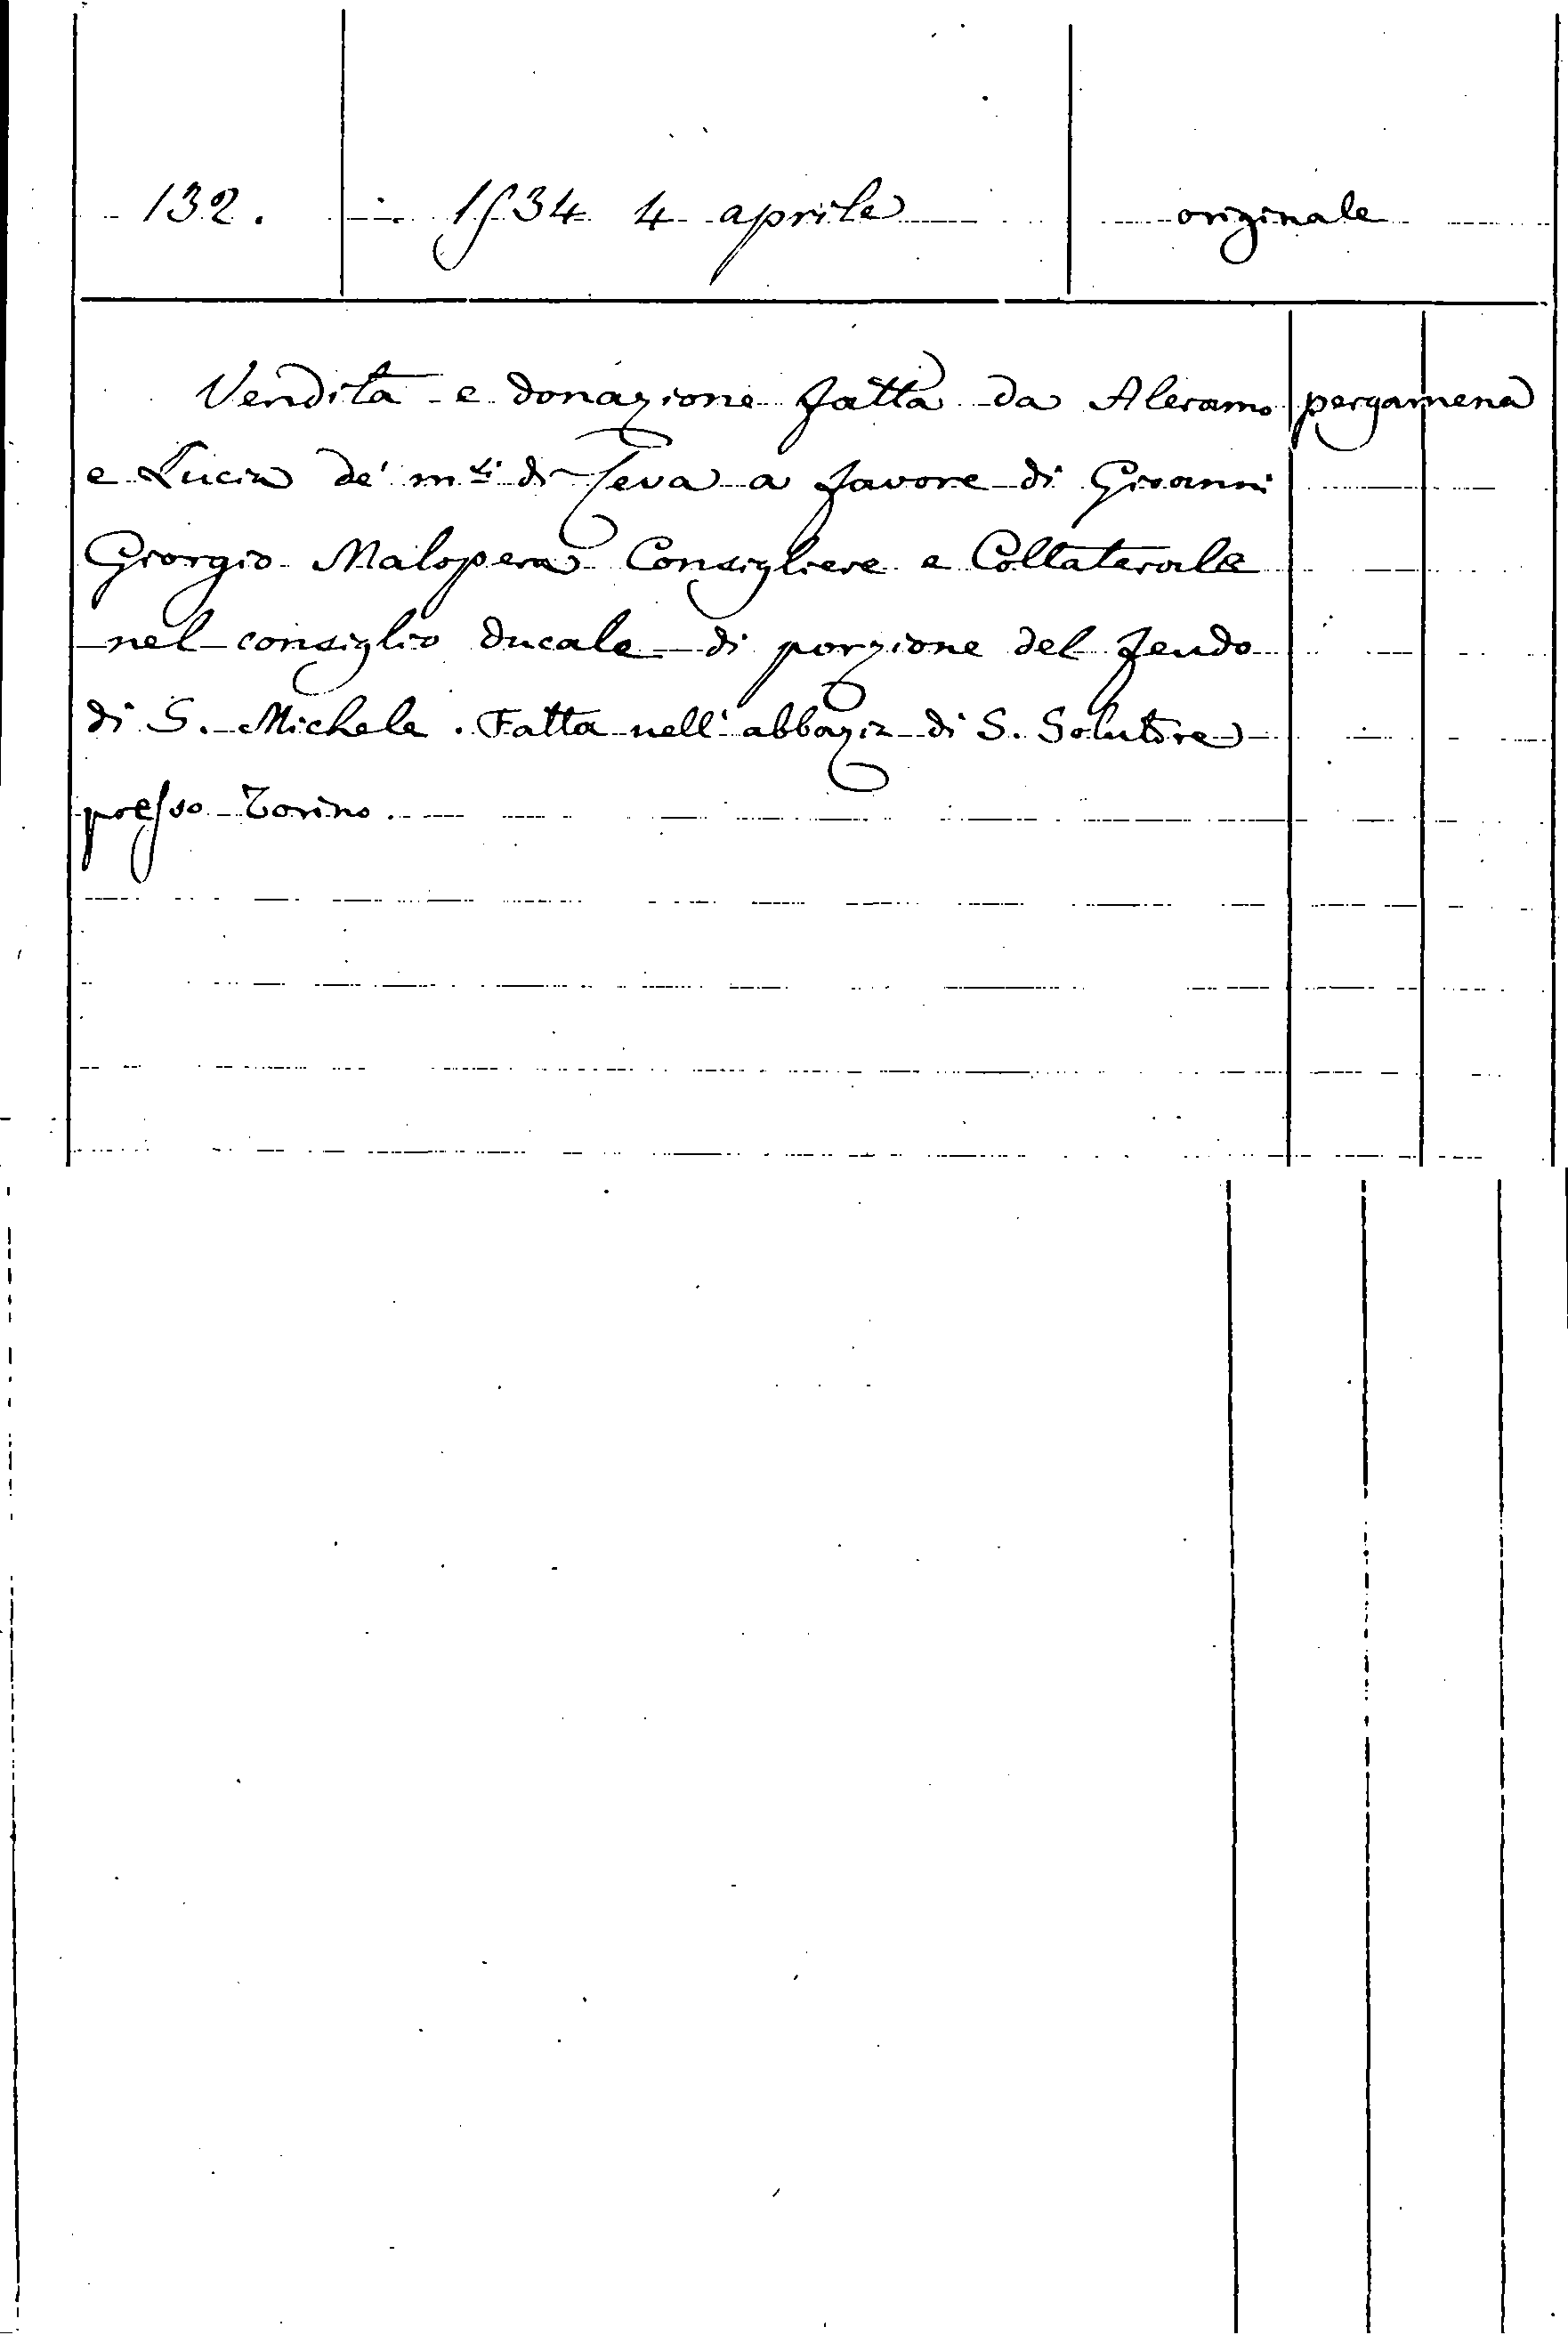 132. 1534 4 aprile originale
Vendita e donazione fatta da Aleramo pergamena
e Lucia de' m.si di Ceva a favore di Gioanni
Giorgio Malopera Consigliere e Collaterale
nel consiglio ducale di porzione del feudo
di S. Michele. Fatta nell'abbazia di S. Solutore
presso Torino.